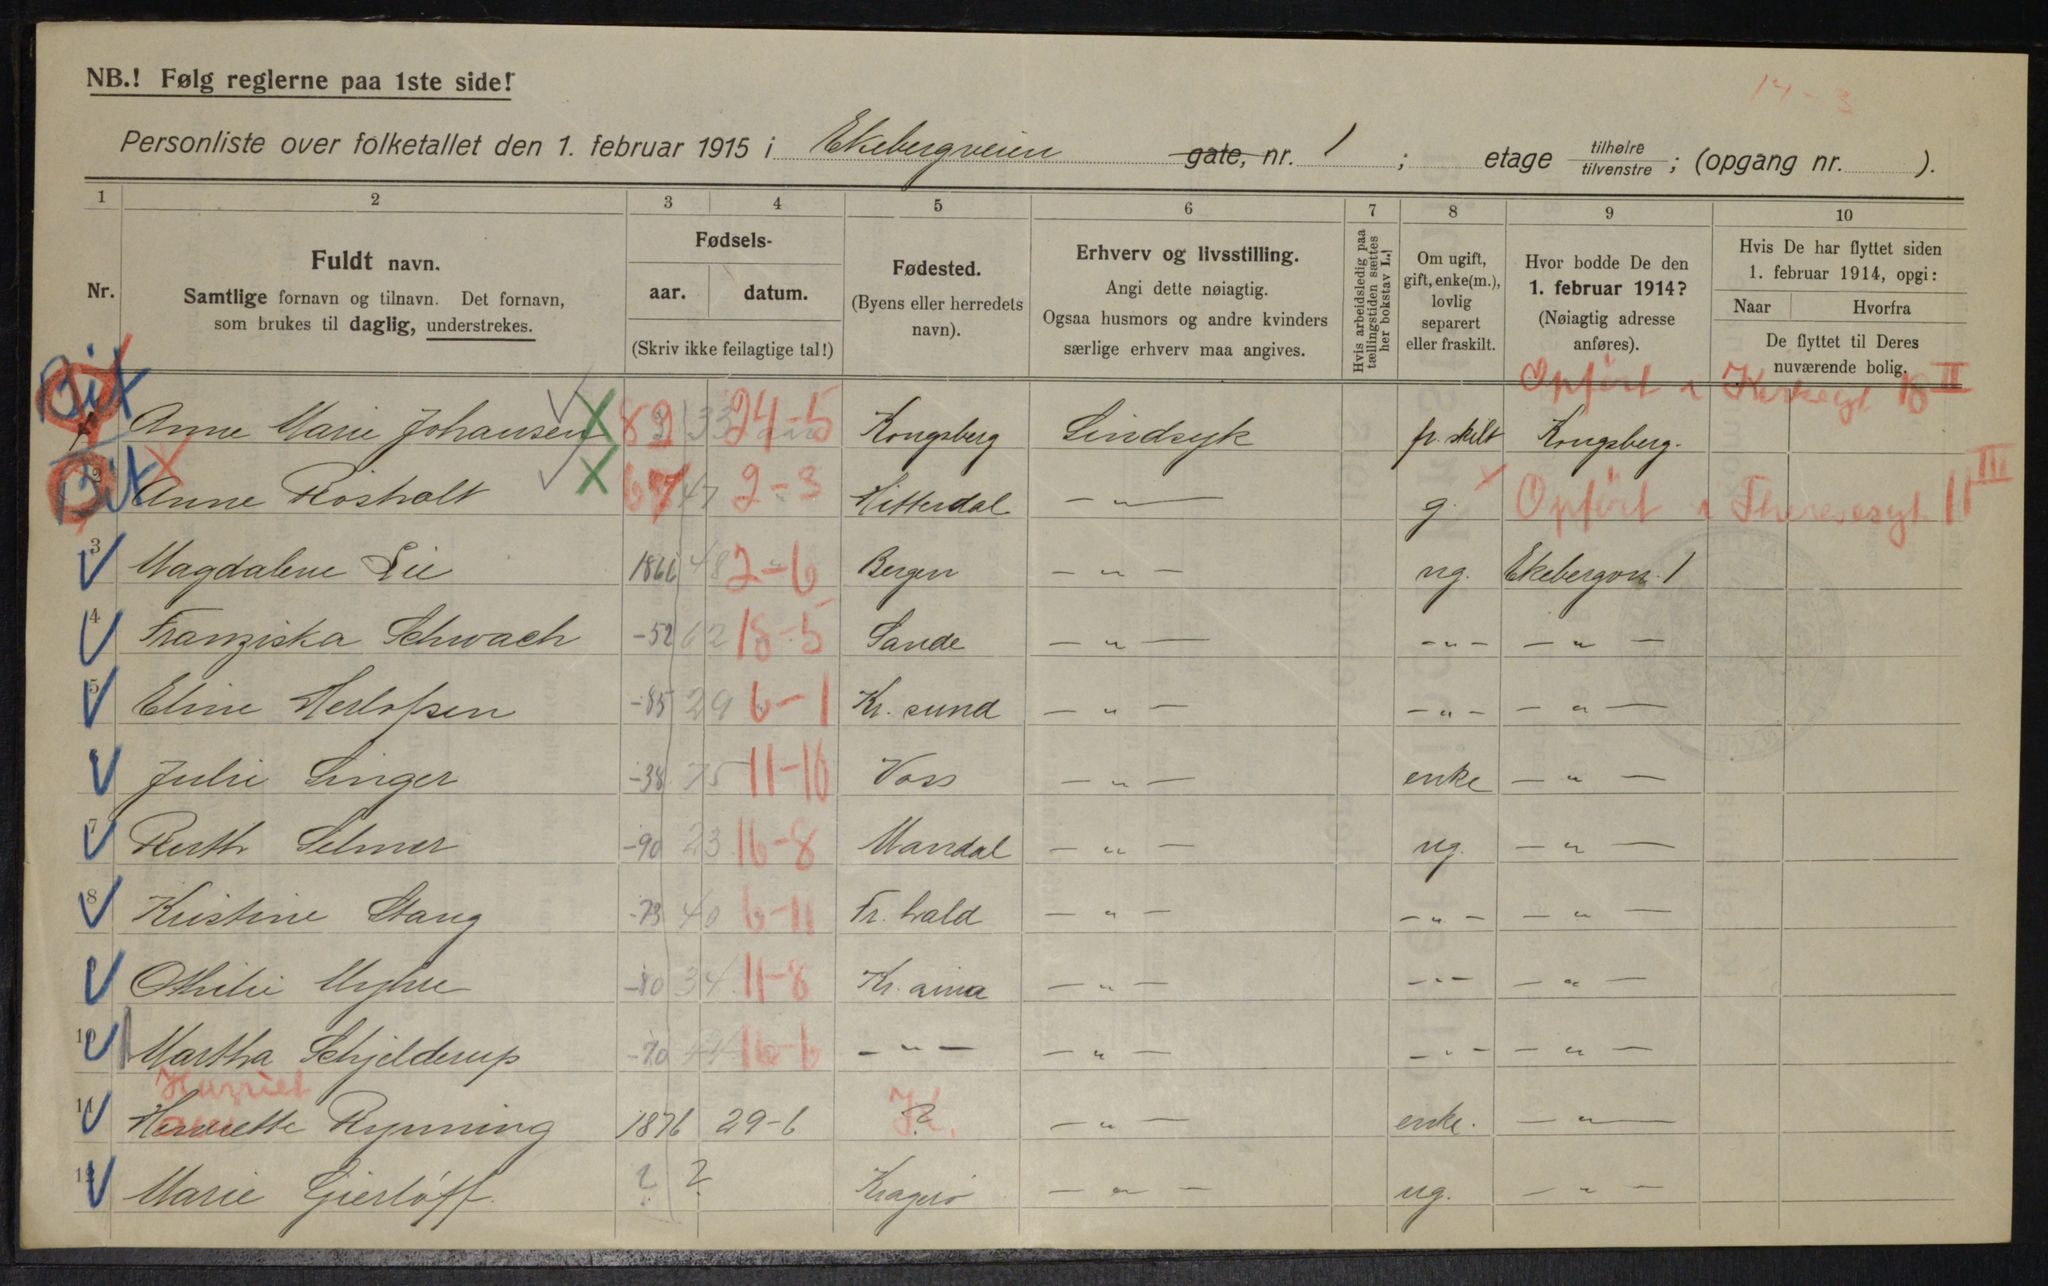 14-3
NB.! Følg reglerne paa 1ste side!
Personliste over folketallet den 1. februar 1915 i Ekebergveien gate, nr. 1 ; etage tilhøire tilvenstre ; (opgang nr. ).
1 2 3 4 5 6 7 8 9 10
Nr.
Fuldt navn.
Samtlige fornavn og tilnavn. Det fornavn,
som brukes til daglig, understrekes.
Fødsels-
aar. datum.
(Skriv ikke feilagtige tal!)
Fødested.
(Byens eller herredets
navn).
Erhverv og livsstilling.
Angi dette nøiagtig.
Ogsaa husmors og andre kvinders
særlige erhverv maa angives.
Hvis arbeidsledig paa
tællingstiden sættes
her bokstav L.!
Om ugift,
gift, enke(m.),
lovlig
separert
eller fraskilt.
Hvor bodde De den
1. februar 1914?
(Nøiagtig adresse
anføres).
Hvis De har flyttet siden
1. februar 1914, opgi:
Naar Hvorfra
De flyttet til Deres
nuværende bolig.
Opført i Kirkegt 18 II
Anne Marie Johansen 82 33 24-5 Kongsberg Sindsyk fr. skilt Kongsberg.
2 Anne Rosholt 67 47 2-3 Hitterdal — " — g. Opført i Theresesgt. 11 III
3 Magdalene Lie 1866 48 2-6 Bergen — " — ug. Ekebergvn. 1
4 Franziska Schwach -52 62 18-5 Sande — " — - " - — " —
5 Eline Herlofsen -85 29 6-1 Kr. sund — " — - " - — " —
6 Julie Singer -38 75 11-10 Voss — " — enke — " —
7 Ruth Selmer -90 23 16-8 Mandal — " — ug. — " —
8 Kristine Stang -73 40 6-11 Fr. hald — " — - " - — " —
9 Othilie Myhre -80 34 11-8 Kr. ania — " — - " - — " —
10 Martha Schjelderup -70 44 16-6 - " - — " — - " - — " —
Harriet
11 Henriette Rynning 1876 29-6 ? K. — " — enke. — " —
12 Marie Gierløff ? ? Kragerø — " — ug. — " —